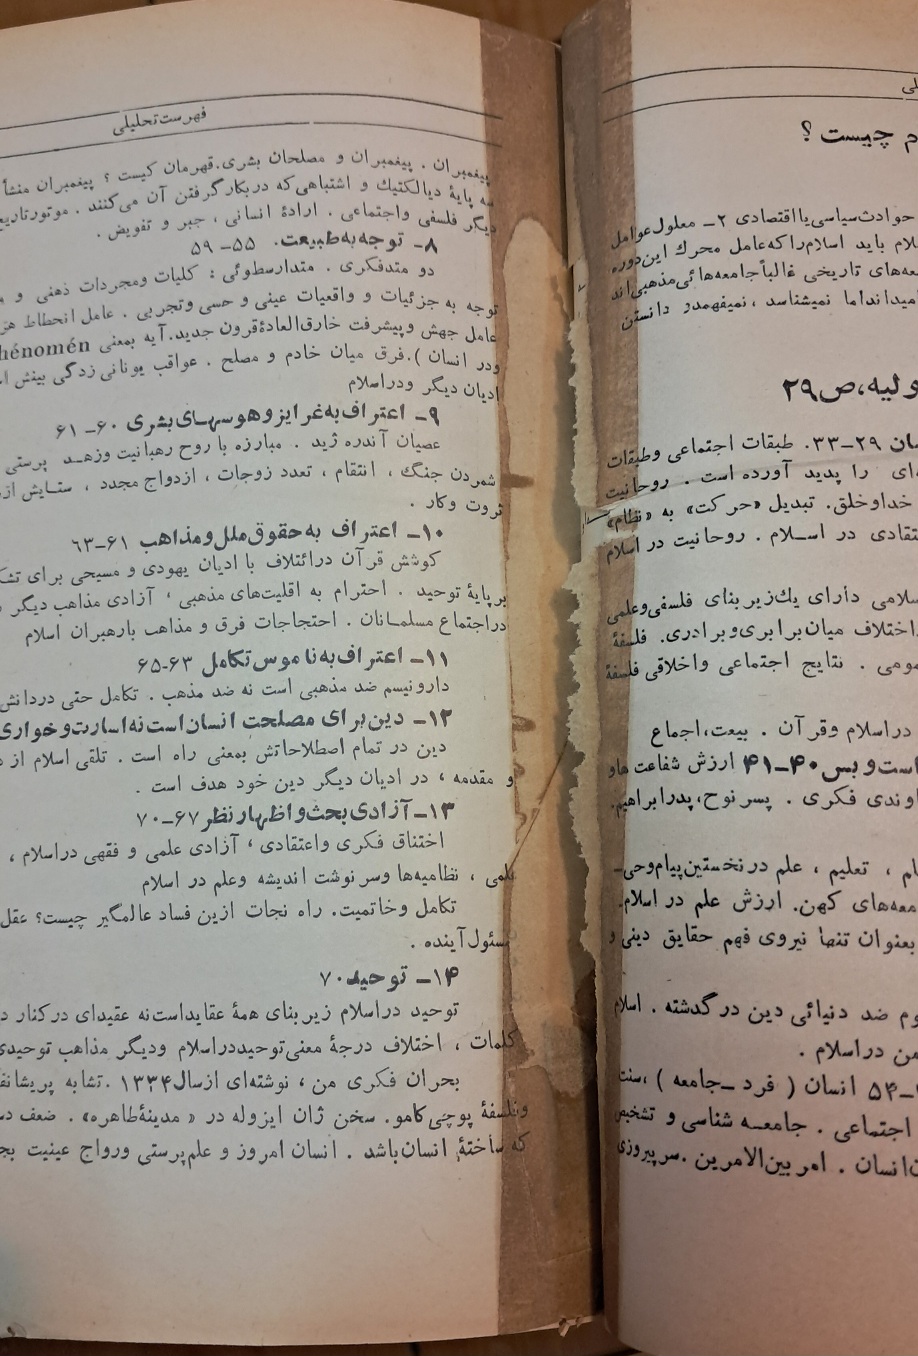 م چیست ؟
حوادث سیاسی یا اقتصادی ۲ـ معلول عوامل
لام باید اسلام را که عامل محرك این دوره
عه‌های تاریخی غالباً جامعه‌هائی مذهبی‌اند
میداند اما نمیشناسد ، نمیفهمد و دانستن
ولیه، ص ۲۹
ان ۲۹ـ۳۳. طبقات اجتماعی وطبقات
ه‌ای را پدید آورده است . روحانیت
خداوخلق. تبدیل «حرکت» به «نظام»
تقادی در اسلام . روحانیت در اسلام
سلامی دارای یك زیر بنای فلسفی وعلمی
اختلاف میان برابری وبرادری. فلسفهٔ
ومی . نتایج اجتماعی واخلاقی فلسفهٔ
دراسلام وقرآن . بیعت، اجماع
است و بس ۴۰ـ۴۱ ارزش شفاعت‌ها و
اوندی فکری . پسر نوح، پدرابراهیم.
ام ، تعلیم ، علم در نخستین پیام وحی‌ـ
معه‌های کهن. ارزش علم در اسلام.
بعنوان تنها نیروی فهم حقایق دینی و
وم ضد دنیائی دین در گذشته . اسلام
من دراسلام .
ـ۵۴ انسان ( فرد ـ جامعه ) ، سنت
اجتماعی . جامعه شناسی و تشخیص
ن انسان . امر بین‌الامرین . سرپیروزی
فهرست تحلیلی
پیغمبران . پیغمبران و مصلحان بشری. قهرمان کیست ؟ پیغمبران منشأ
سه پایهٔ دیالکتیك و اشتباهی که در بکار گرفتن آن می‌کنند . موتور تاریخ
دیگر فلسفی واجتماعی . ارادهٔ انسانی ، جبر و تفویض .
۸ـ توجه به طبیعت. ۵۵ـ ۵۹
دو متدفکری . متدارسطوئی : کلیات ومجردات ذهنی و
توجه به جزئیات و واقعیات عینی و حسی وتجربی . عامل انحطاط
عامل جهش وپیشرفت خارق‌العادهٔ قرون جدید. آیه بمعنی hénomén
ودر انسان ). فرق میان خادم و مصلح . عواقب یونانی زدگی بینش
ادیان دیگر ودراسلام
۹ـ اعتراف به غرایز و هوسهای بشری ۶۰ـ ۶۱
عصیان آندره ژید . مبارزه با روح رهبانیت وزهد پرستی
شمردن جنگ ، انتقام ، تعدد زوجات ، ازدواج مجدد ، ستایش از
ثروت وکار .
۱۰ـ اعتراف به حقوق ملل و مذاهب ۶۱ـ۶۳
کوشش قرآن درائتلاف با ادیان یهودی و مسیحی برای
برپایهٔ توحید . احترام به اقلیت‌های مذهبی ، آزادی مذاهب دیگر
دراجتماع مسلمانان . احتجاجات فرق و مذاهب بارهبران اسلام
۱۱ـ اعتراف به ناموس تکامل ۶۳ـ۶۵
داروینیسم ضد مذهبی است نه ضد مذهب . تکامل حتی در
۱۲ـ دین برای مصلحت انسان است نه اسارت و خواری
دین در تمام اصطلاحاتش بمعنی راه است . تلقی اسلام از
و مقدمه ، در ادیان دیگر دین خود هدف است .
۱۳ـ آزادی بحث و اظهار نظر ۶۷ـ۷۰
اختناق فکری واعتقادی ، آزادی علمی و فقهی دراسلام ،
علمی ، نظامیه‌ها وسرنوشت اندیشه وعلم در اسلام
تکامل وخاتمیت. راه نجات ازین فساد عالمگیر چیست؟ عقل
مسئول آینده .
۱۴ـ توحید ۷۰
توحید دراسلام زیر بنای همهٔ عقایداست نه عقیده‌ای در کنار
کلمات ، اختلاف درجهٔ معنی توحید دراسلام ودیگر مذاهب توحیدی
بحران فکری من ، نوشته‌ای از سال ۱۳۳۴ . تشابه
وفلسفهٔ پوچی کامو. سخن ژان ایزوله در « مدینهٔ طاهره» . ضعف
که ساختهٔ انسان باشد . انسان امروز و علم پرستی ورواج عینیت